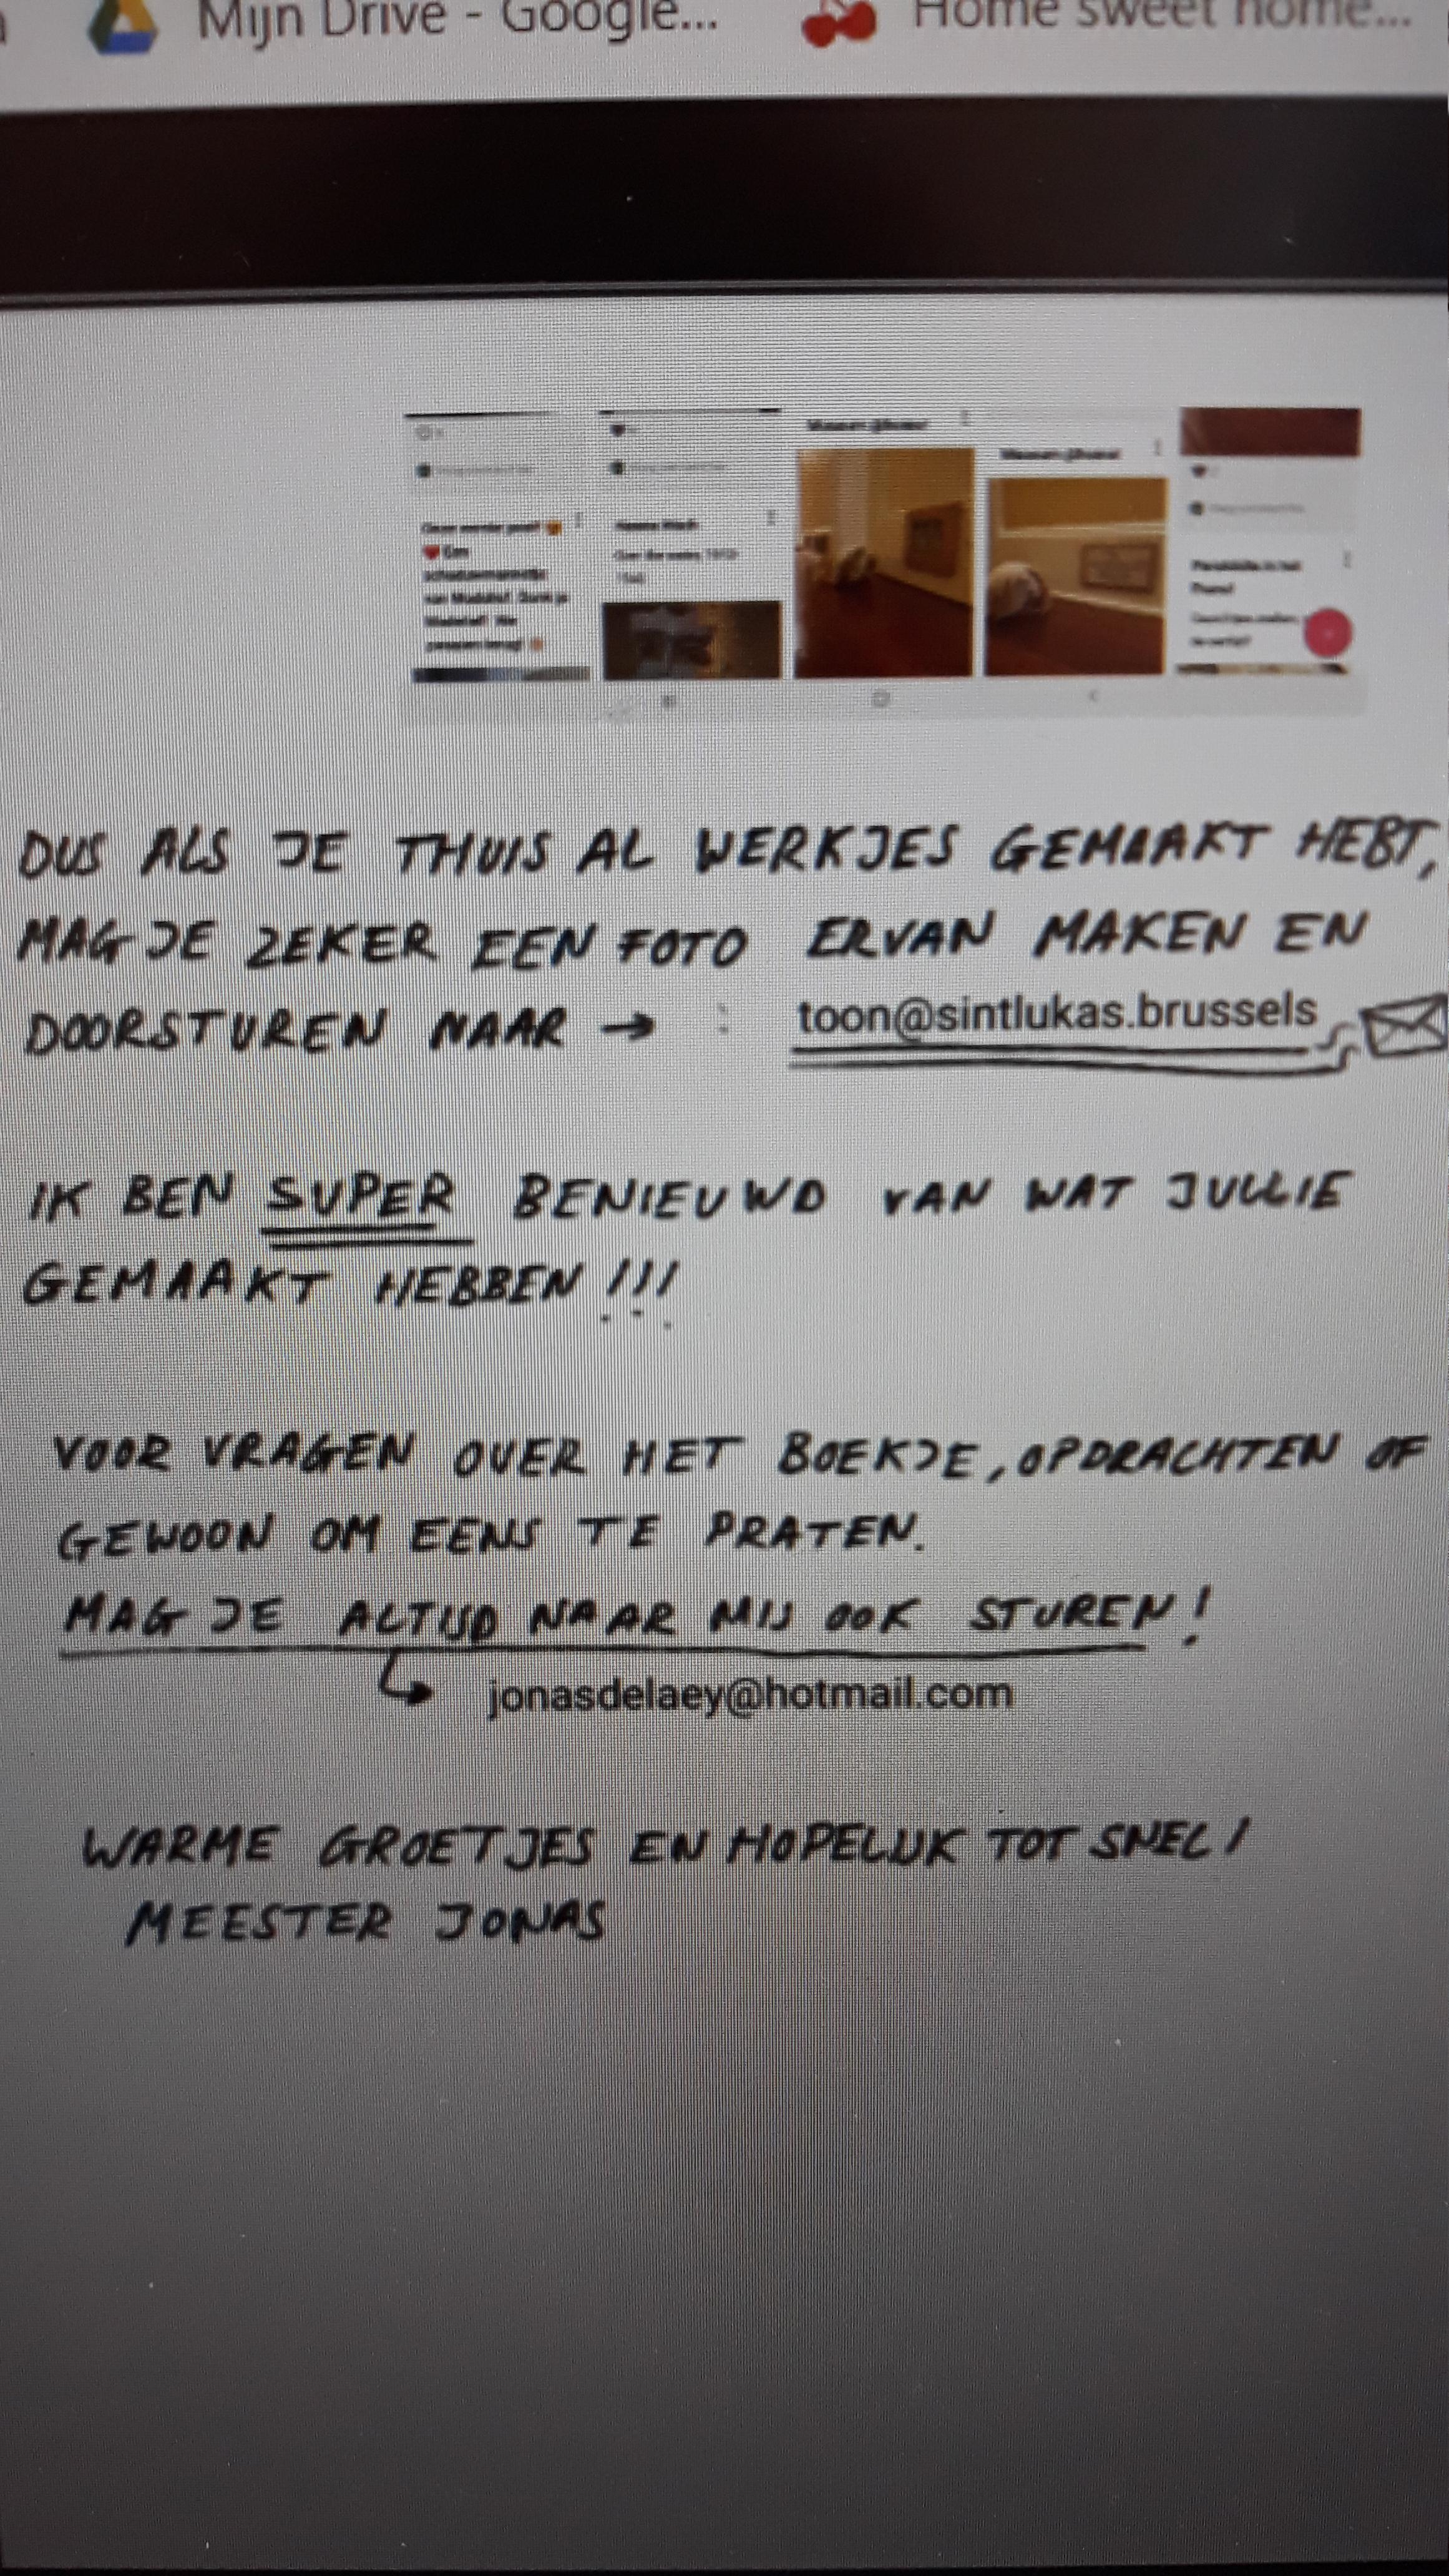 Mijn Drive - Google...
Home sweet home...
DUS ALS JE THUIS AL WERKJES GEMAAKT HEBT,
MAG JE ZEKER EEN FOTO ERVAN MAKEN EN
DOORSTUREN NAAR → : toon@sintlukas.brussels
IK BEN SUPER BENIEUWD VAN WAT JULLIE
GEMAAKT HEBBEN !!!
VOOR VRAGEN OVER HET BOEKJE, OPDRACHTEN OF
GEWOON OM EENS TE PRATEN.
MAG JE ALTIJD NAAR MIJ OOK STUREN!
jonasdelaey@hotmail.com
WARME GROETJES EN HOPELIJK TOT SNEL!
MEESTER JONAS